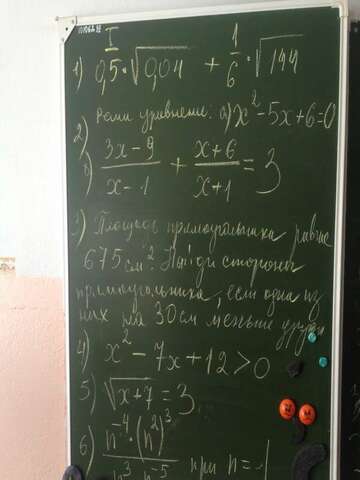 I
1) 0,5·√0,04 + 1/6·√144
2) Реши уравнение: а) x² - 5x + 6 = 0
б) (3x - 9)/(x - 1) + (x + 6)/(x + 1) = 3
3) Площадь прямоугольника равна
675 см². Найди стороны
прямоугольника, если одна из
них на 30 см меньше другой
4) x² - 7x + 12 > 0
5) √x+7 = 3
6) n⁻⁴·(n²)³ / n³ n⁻⁵ при n =